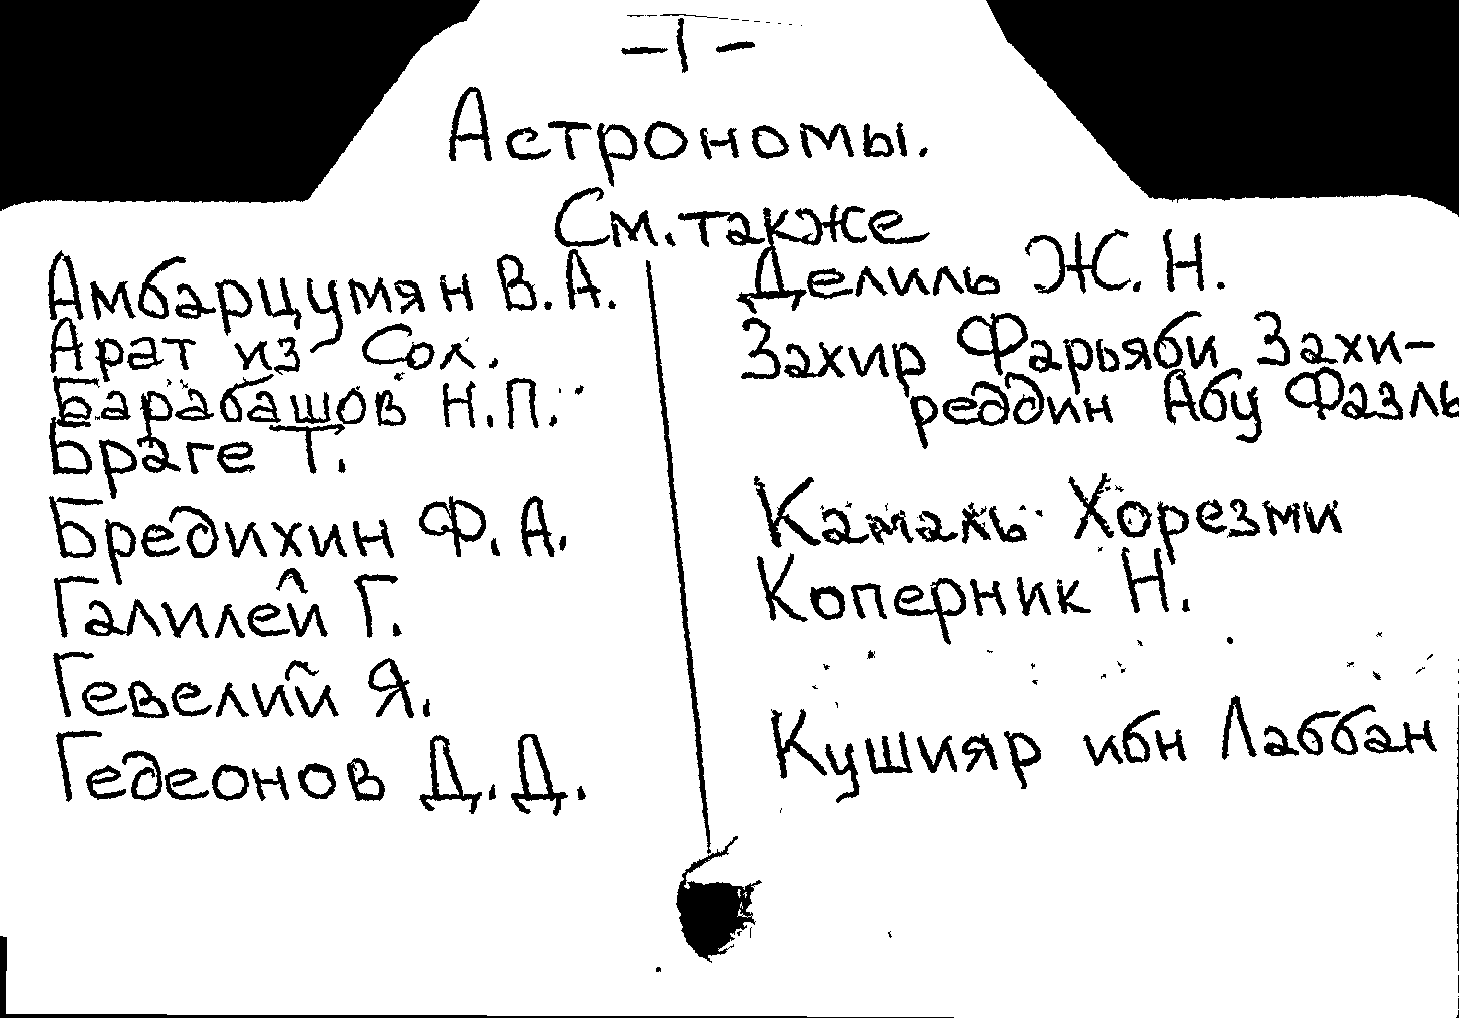 -1-
Астрономы.
См. также
Амбарцумян В.А.
Арат из Сол.
Барабашов Н.П.
Браге Т.
Бредихин Ф.А.
Галилей Г.
Гевелий Я.
Гедеонов Д.Д.
Делиль Ж.Н.
Захир Фарьяби Захи-
реддин Абу Фазль
Камаль Хорезми
Коперник Н.
Кушияр ибн Лаббан